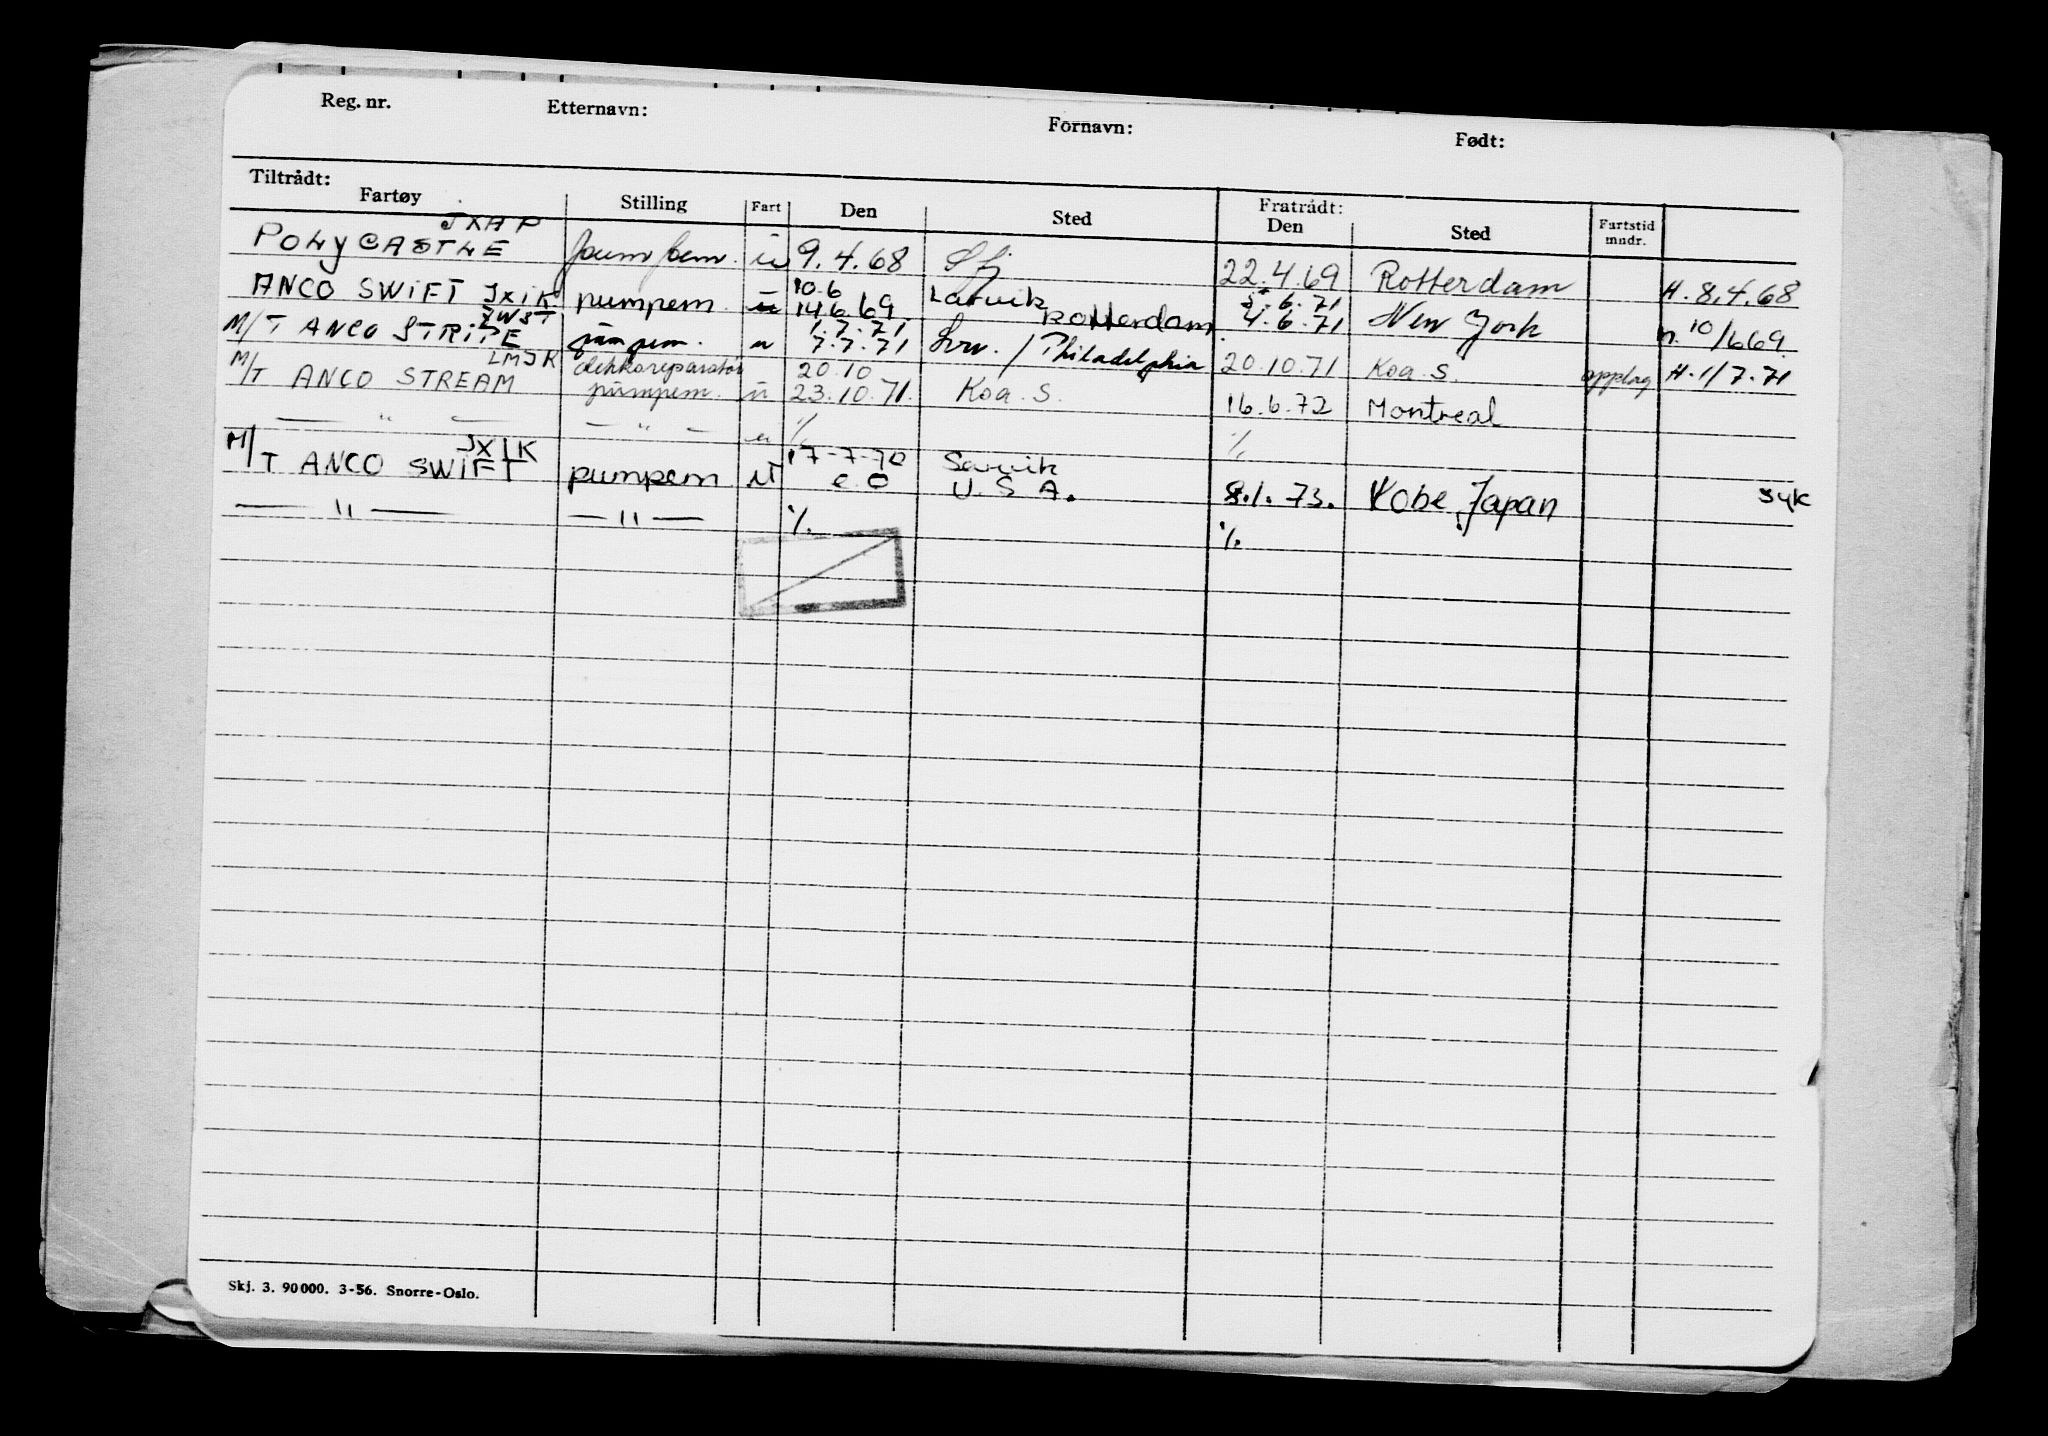 Reg. nr. Etternavn: Fornavn: Født:
Tiltrådt: Fratrådt:
Fartøy Stilling Fart Den Sted Den Sted Fartstid mndr.
JXAP
POLYCASTLE pumpem. u 9.4.68 Sfj 22.4.69 Rotterdam H. 8.4.68
10.6 5.6.71
ANCO SWIFT JXIK pumpem u 14.6.69. Larvik Rotterdam 4.6.71 New York n. 10/6 69
JWST 1.7.71
M/T ANCO STRIPE pumpem. u 7.7.71 Lrv. / Philadelphia 20.10.71 Koa. S. opplag H. 1/7.71
LMJK dekksreparatør 20.10
M/T ANCO STREAM pumpem. u 23.10.71. Koa. S. 16.6.72 Montreal
— " — — " — u ·/. ·/.
JXIK 17-7-72 Larvik
M/T ANCO SWIFT pumpem U e.o U.S.A. 8.1.73. Kobe, Japan syk
— " — — " — ·/. ·/.
Skj. 3. 90000. 3-56. Snorre-Oslo.